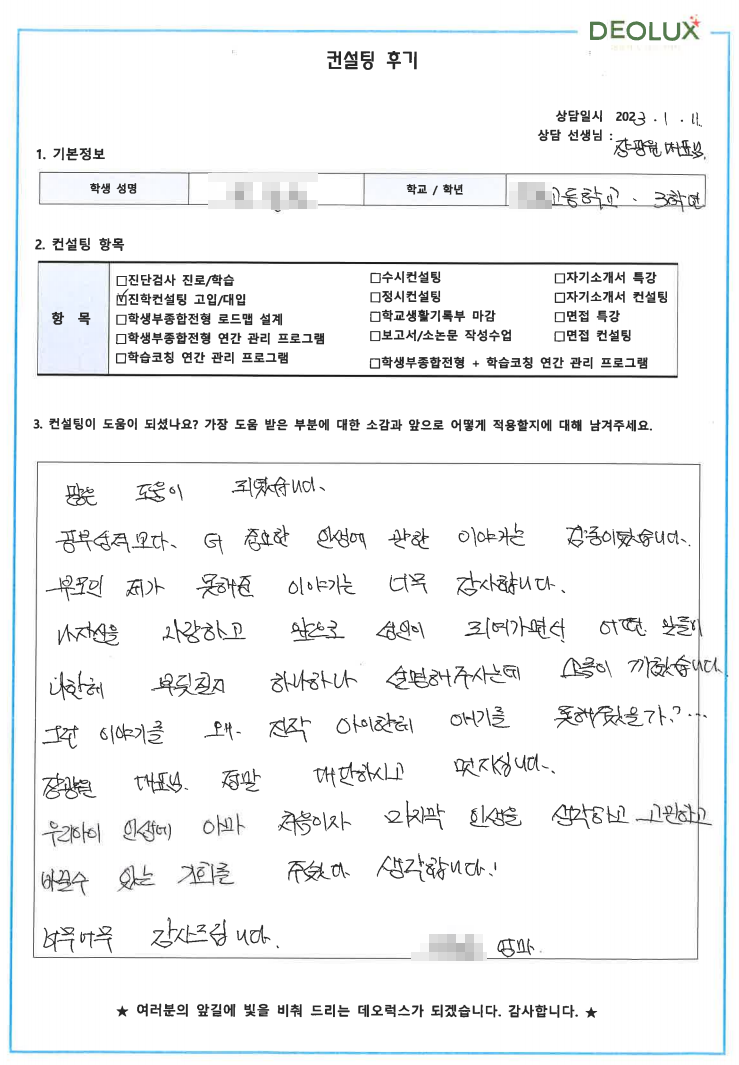 DEOLUX
컨설팅 후기
상담일시 2023. 1. 11
상담 선생님 : 장광원 대표님.
1. 기본정보
학생 성명 학교 / 학년 고등학교. 3학년
2. 컨설팅 항목
항 목
□진단검사 진로/학습 □수시컨설팅 □자기소개서 특강
☑진학컨설팅 고입/대입 □정시컨설팅 □자기소개서 컨설팅
□학생부종합전형 로드맵 설계 □학교생활기록부 마감 □면접 특강
□학생부종합전형 연간 관리 프로그램 □보고서/소논문 작성수업 □면접 컨설팅
□학습코칭 연간 관리 프로그램 □학생부종합전형 + 학습코칭 연간 관리 프로그램
3. 컨설팅이 도움이 되셨나요? 가장 도움 받은 부분에 대한 소감과 앞으로 어떻게 적용할지에 대해 남겨주세요.
많은 도움이 되였습니다.
공부성적보다. 더 중요한 인생에 관한 이야기는 감동이였습니다.
부모인 제가 못해준 이야기는 너무 감사합니다.
나자신을 사랑하고 앞으로 성인이 되여가면서 어떤 일들이
나한테 부딪칠지 하나하나 설명해주시는데 소름이 끼쳤습니다.
그런 이야기를 왜. 진작 아이한테 얘기를 못해주었을가?...
장광원 대표님. 정말 대단하시고 멋지십니다.
우리아이 인생에 아마 처음이자 마지막 인생을 생각하고 고민하고
바꿀수 있는 기회를 주셨다 생각합니다.!
너무너무 감사드립니다.
엄마.
★ 여러분의 앞길에 빛을 비춰 드리는 데오럭스가 되겠습니다. 감사합니다. ★